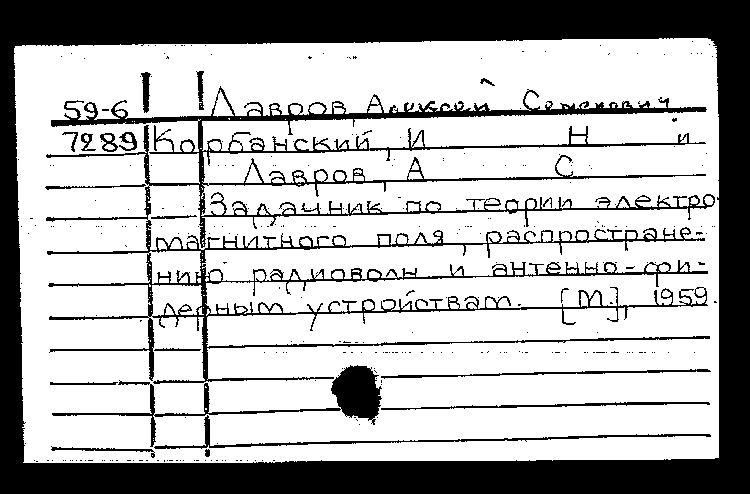 59-6 Лавров, Алексей Семенович
7289 Корбанский, И Н и
Лавров, А С
Задачник по теории электро
магнитного поля, распростране-
нию радиоволн и антенно-фи-
дерным устройствам. [М.], 1959.